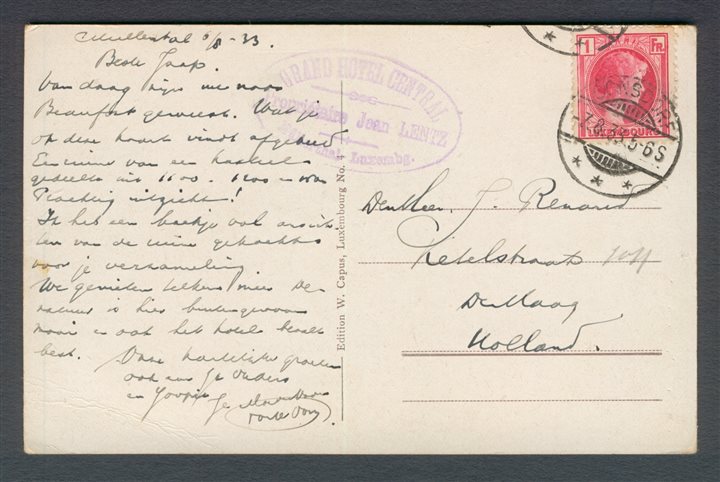 Mullerthal 6/8-33
Beste Jaap.
Van daag zijn we naar
Beaufort geweest. Wat je
op deze kaart vindt afgebeeld
Een ruine van een kasteel
gedeelte uit 1100. 1200 en was
Prachtig uitzicht!
Ik heb een boekje vol ansich-
ten van de ruine gekocht
voor je verzameling
We genieten telkens meer De
natuur is hier buitengewoon
mooi en ook het hotel bevalt
best. Onze hartelijke groeten
ook aan je Ouders
en Joopie
je
GRAND HOTEL CENTRAL
Propriétaire Jean LENTZ
Mullerthal, Luxembg.
Edition W. Capus, Luxembourg No. 4
1 FR.
LUXEMBOURG
7.8.33.5-6S
Den Heer J. Renard
Ketelstraat
Den Haag
Holland.